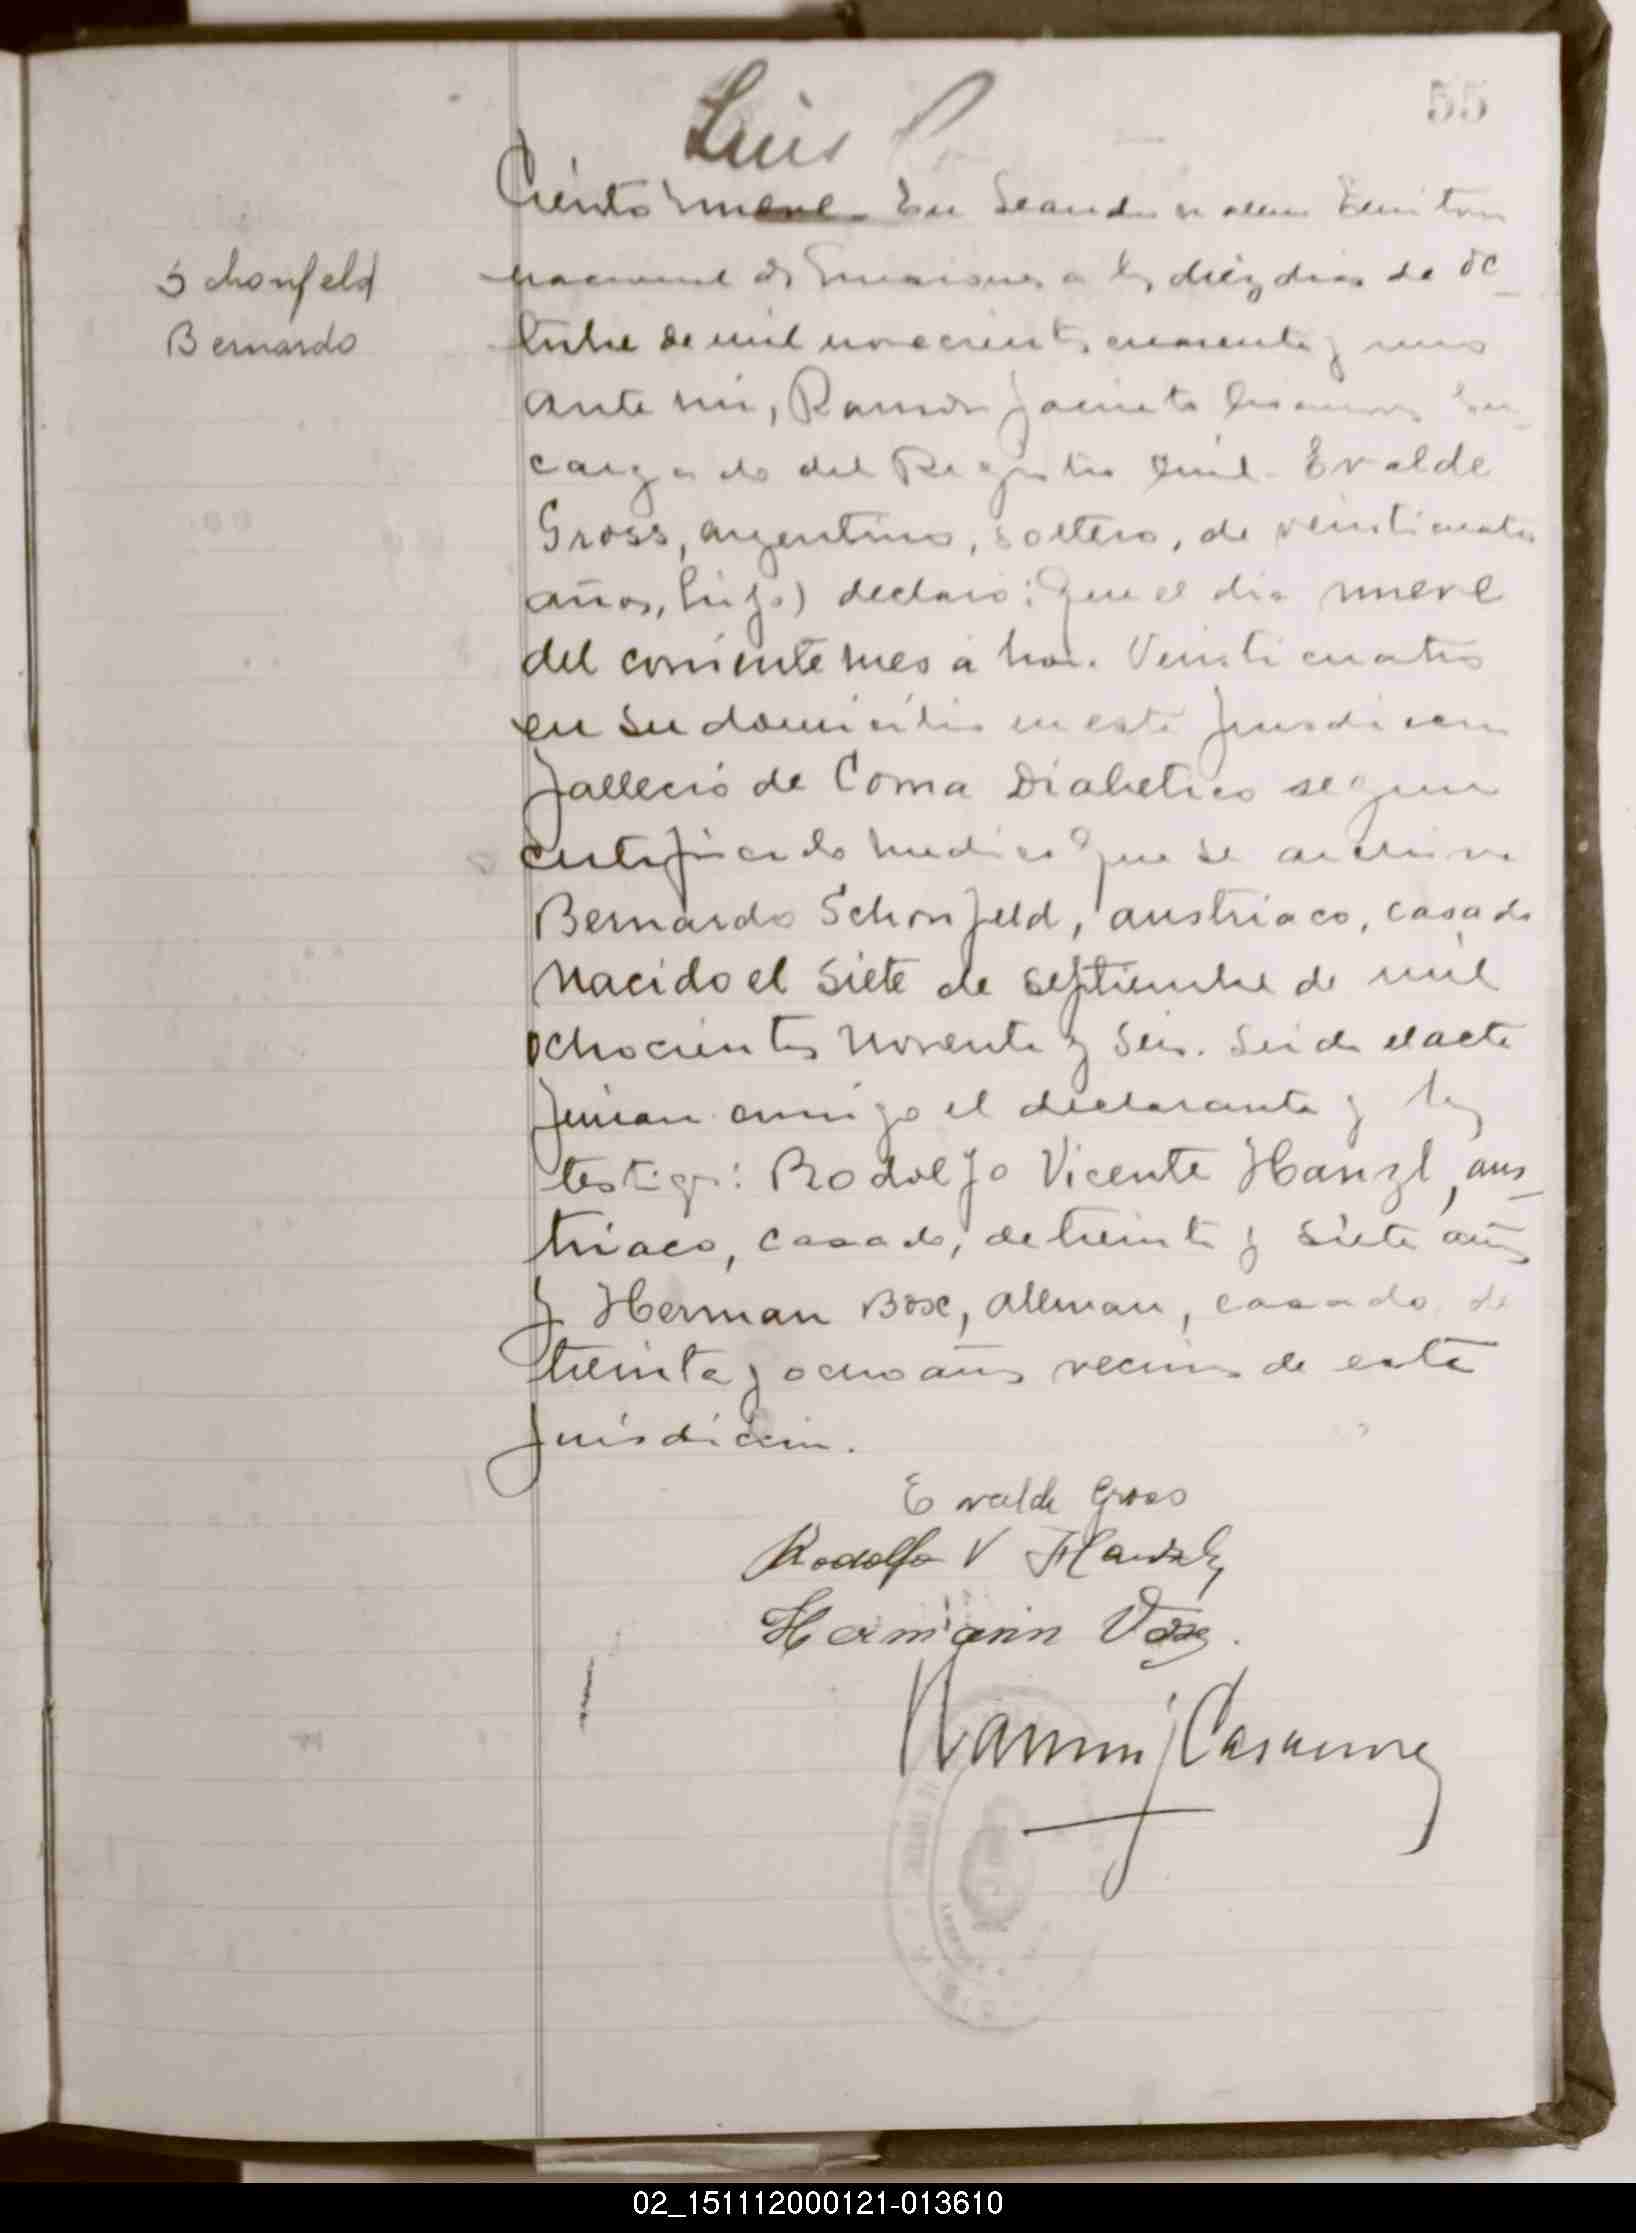 55
Luis
Ciento nueve En Leandro n alem Territorio
nacional de Misiones a los diéz dias de oc
Schonfeld
Bernardo
tubre de mil novecientos cuarenta y uno
ante mi, Ramón Jacinto Casanova En
cargado del Registro Civil Evalde
Gross, argentino, soltero, de veinticuatro
años, hijo) declaro: Que el dia nueve
del corriente mes a hora veinticuatro
en su domicilio en esta jurisdiccion
falleció de Coma Diabetico segun
certificado medico que se archiva
Bernardo Schonfeld, austriaco, casado
nacido el siete de septiembre de mil
ochocientos noventa y seis. Leida el acta
firman conmigo el declarante y los
testigos: Rodolfo Vicente Hanzl, aus
triaco, casado, de treinta y siete años
y Herman Bose, alleman, casado de
treinta y ocho años vecinos de esta
jurisdiccion.
Evalde Gross
Rodolfo V
Hermann
Ramon J Casanova
02_151112000121-013610